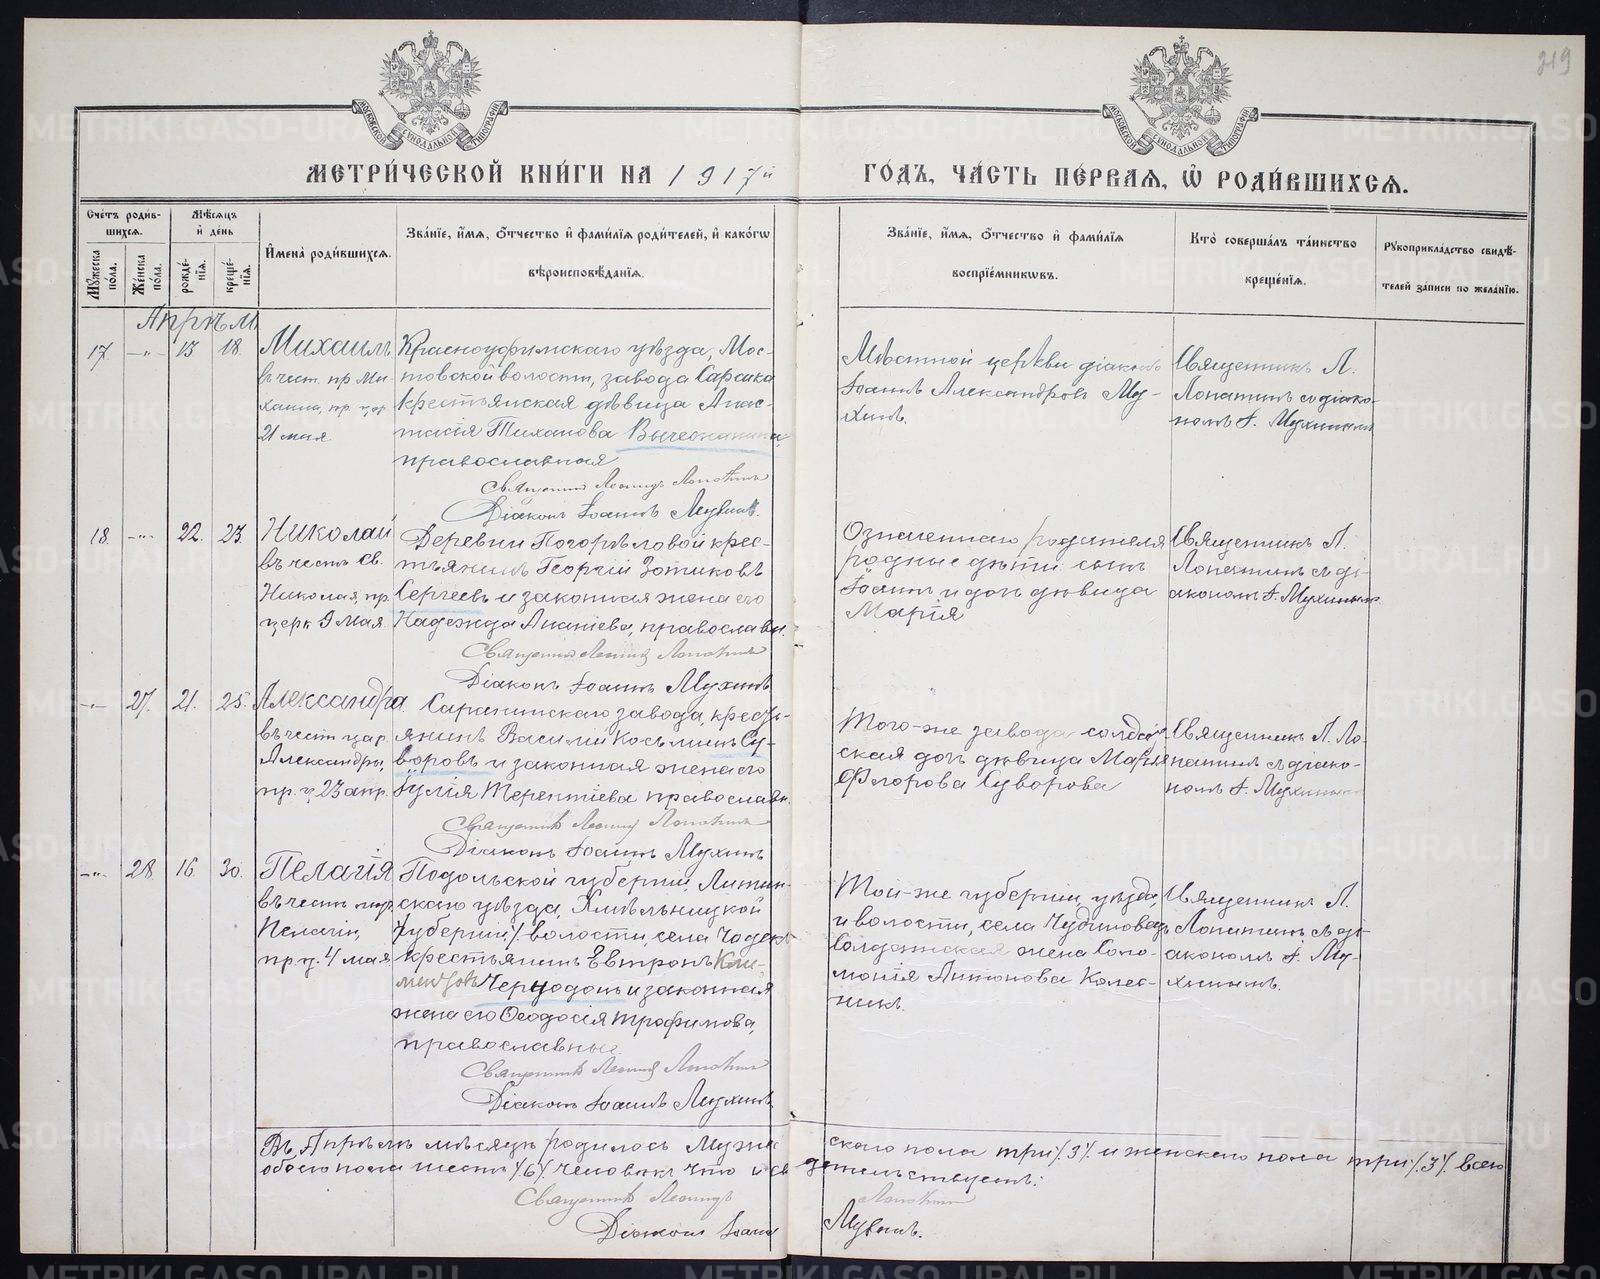 219
МОСКОВСКОЙ СѴНОДАЛЬНОЙ ТИПОГРАФІИ
МОСКОВСКОЙ СѴНОДАЛЬНОЙ ТИПОГРАФІИ
МЕТРИ́ЧЕСКОЙ КНИ́ГИ НА 1917й ГО́ДЪ, ЧА́СТЬ ПЕ́РВАЯ, Ѡ РОДИ́ВШИХСЯ.
Счетъ родив-
шихся.
Мужеска пола.
Женска пола.
Мѣсяцъ
и день
рожде-
нія.
креще-
нія.
Имена родившихся.
Званіе, имя, отчество и фамилія родителей, и какогѡ
вѣроисповѣданія.
Званіе, имя, отчество и фамилія
воспріемниковъ.
Кто совершалъ таинство
крещенія.
Рукоприкладство свидѣ-
телей записи по желанію.
Апрѣль
17. -"- 13 18.
Михаилъ
въ чест. пр. Ми-
хаила, пр. цер.
21 мая.
Красноуфимскаго уѣзда, Мос-
товской волости, завода Сарсика
крестьянская дѣвица Анас-
тасія Тиханова
православная
Священникъ Леонидъ Лопатинъ
Діаконъ Іоаннъ Мухинъ.
Мѣстной церкви діаконъ
Іоаннъ Александровъ Му-
хинъ.
Священникъ Л.
Лопатинъ съ діако-
номъ І. Мухинымъ
18. -"- 22. 23.
Николай
въ честь Св.
Николая, пр.
церк 9 мая.
Деревни Погорѣловой крес-
тьянинъ Георгій Зотиковъ
Сергеевъ и законная жена его
Надежда Ананіева, православн.
Священникъ Леонидъ Лопатинъ
Діаконъ Іоаннъ Мухинъ
Означеннаго родителя
родные дѣти: сынъ
Іоаннъ и дочь дѣвица
Марія
Священникъ Л.
Лопатинъ съ ді-
акономъ І. Мухинымъ.
-"- 27. 21. 25.
Александра
въ чест цар.
Александры,
пр. ц. 23 апр.
Саранинскаго завода, кресть-
янинъ Василій Косьминъ Су-
воровъ и законная жена его
Іулія Терентіева православн.
Священникъ Леонидъ Лопатинъ
Діаконъ Іоаннъ Мухинъ
Того-же завода солдат-
ская дочь дѣвица Марія
Флорова Суворова
Священникъ Л. Ло-
патинъ съ діако-
номъ І. Мухинымъ
-"- 28. 16. 30.
Пелагія
въ честь мур.
Пелагіи,
пр. ц. 4 мая.
Подольской губерніи, Литин-
скаго уѣзда, Хмѣльницкой
губерніи волости, села
крестьянинъ Евтропъ Кли-
ментовъ и законная
жена его Ѳеодосія Трофимова,
православные.
Священникъ Леонидъ Лопатинъ
Діаконъ Іоаннъ Мухинъ
Той-же губерніи, уѣзда,
и волости, села
Солдатская жена Соло-
монія Антонова Колес-
никъ.
Священникъ Л.
Лопатинъ съ ді-
акономъ І. Му-
хинымъ.
Въ Апрѣлѣ мѣсяцѣ родилось Мужескаго пола три /.3/. и женскаго пола три /.3/. всего
обоего пола шесть /6/ человѣкъ что и свидетельствуемъ:
Священникъ Леонидъ Лопатинъ
Діаконъ Іоаннъ Мухинъ.
METRIKI.GASO-URAL.RU